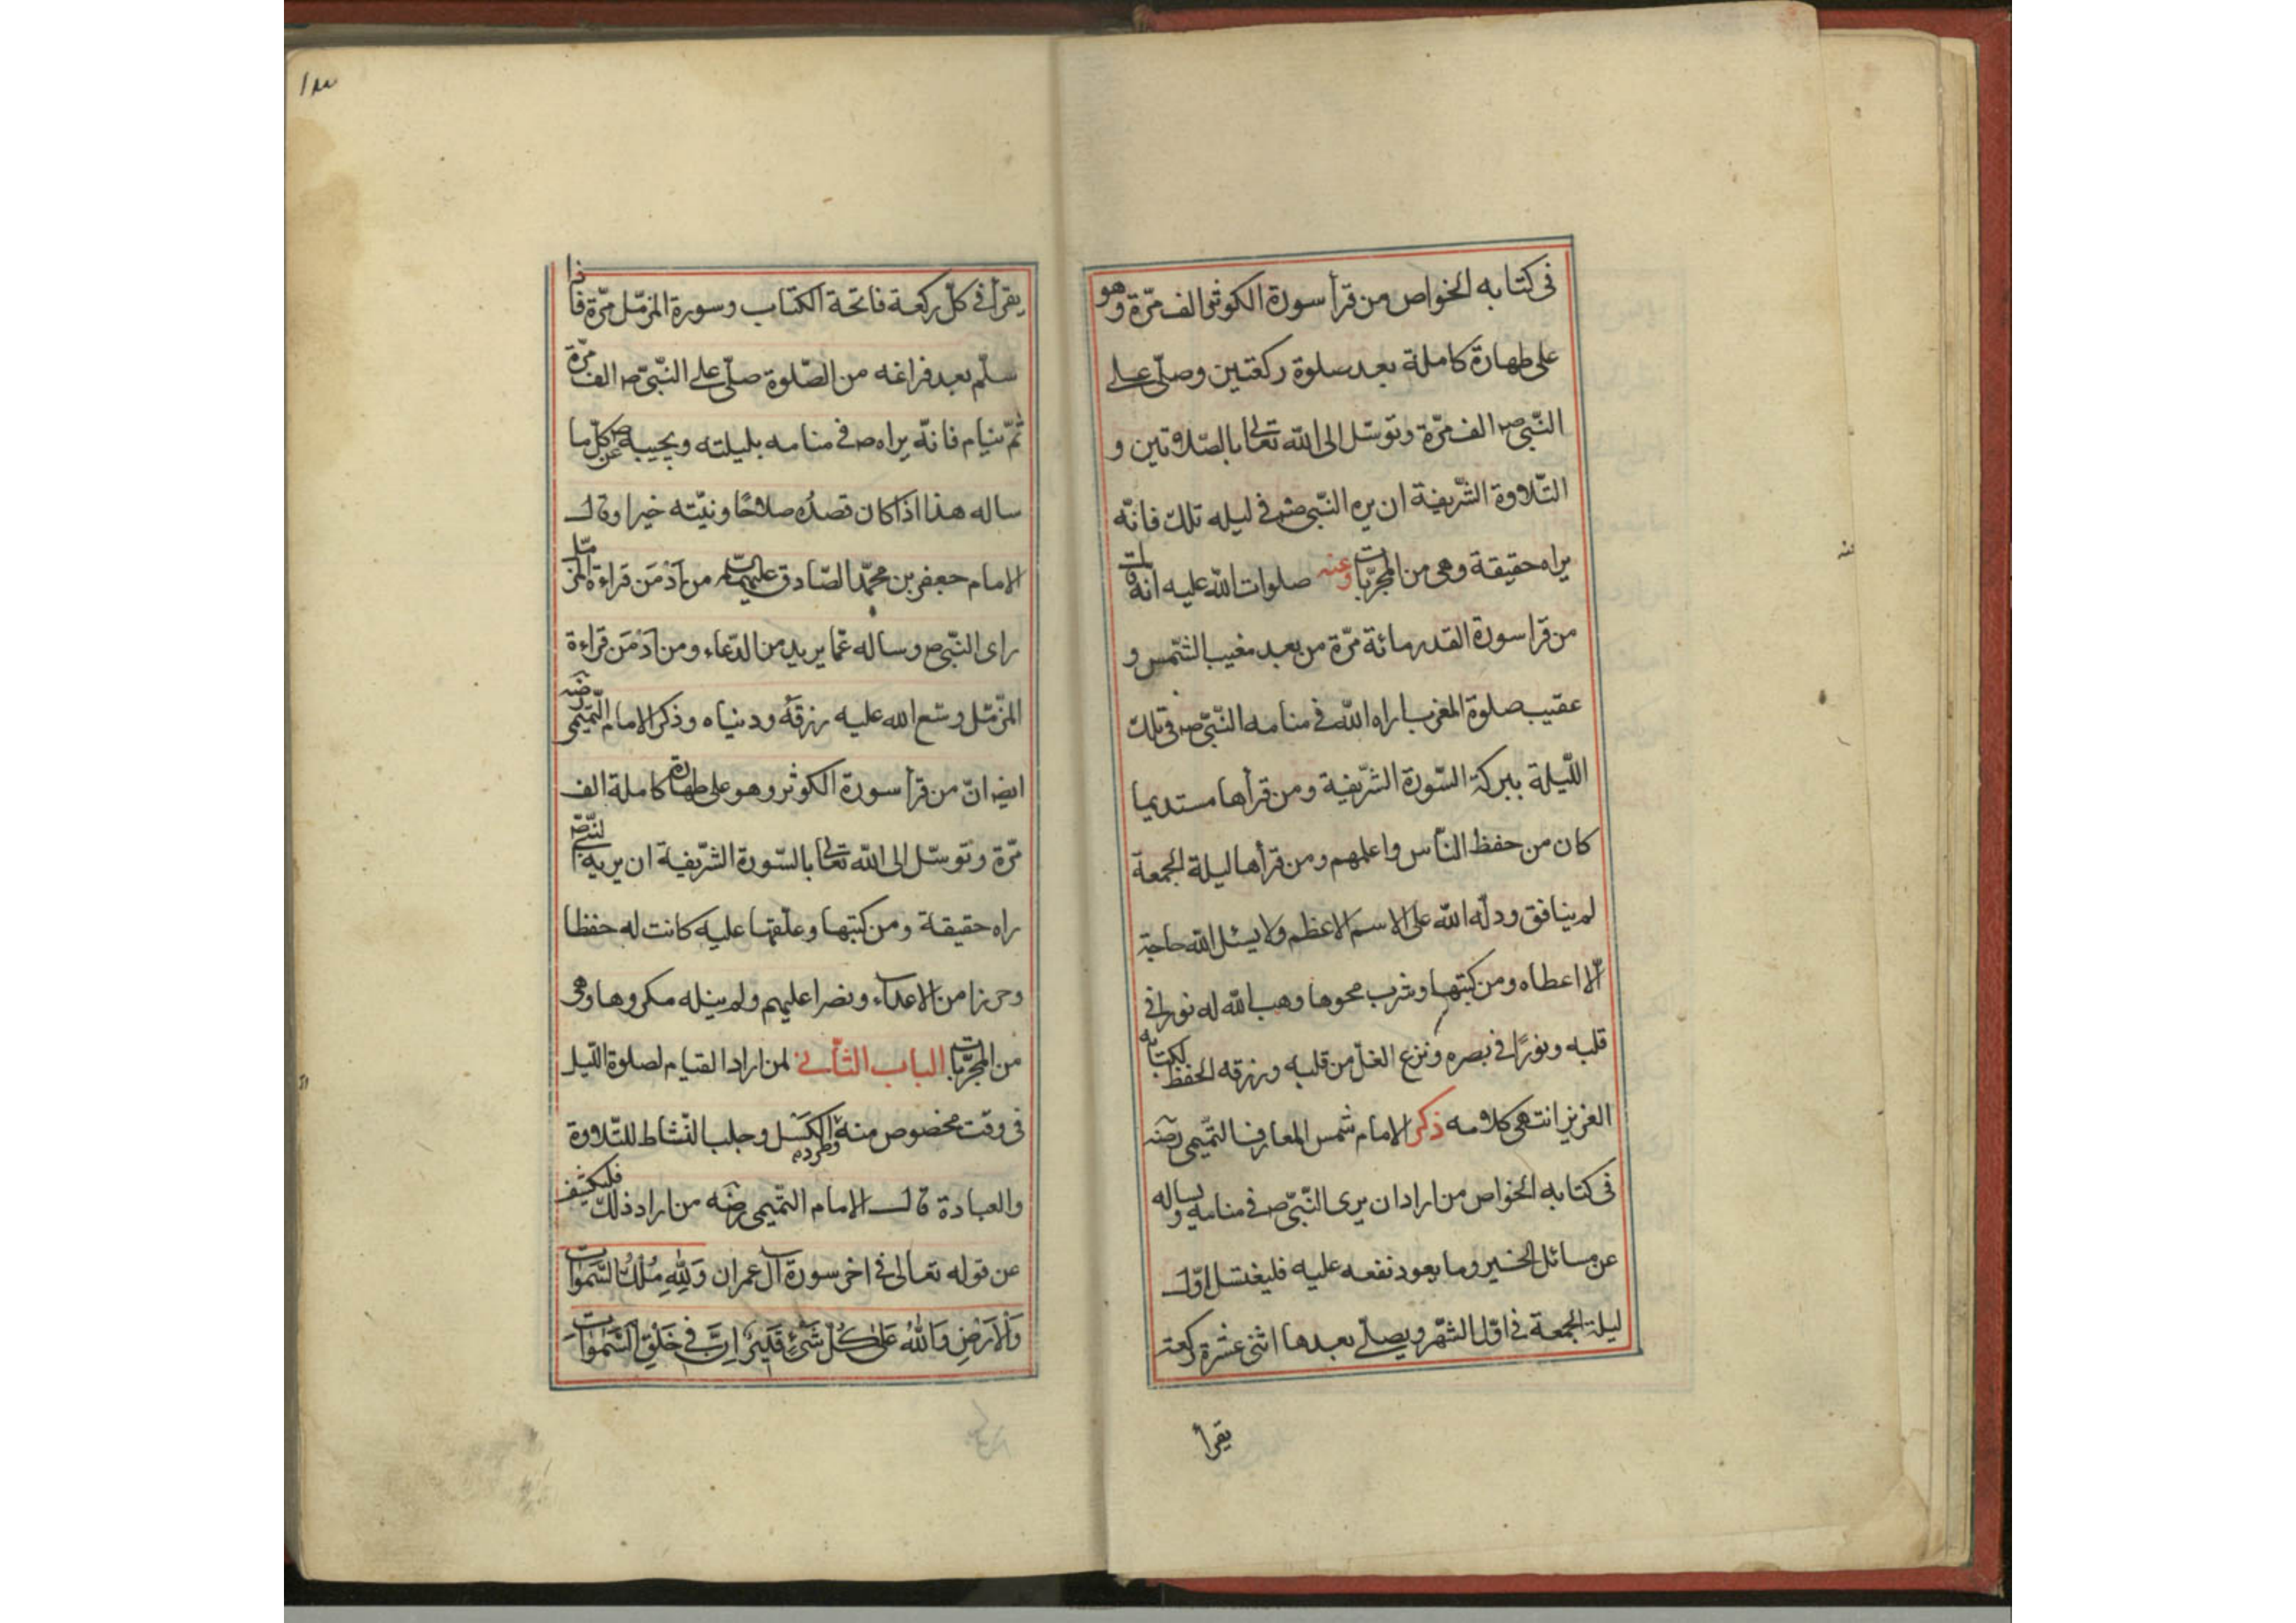 فى كتابه الخواص من قرأ سورة الكوثر الف مرّة وهو
على طهارة كاملة بعد سلوة ركعتين وصلّى على
النّبى ص الف مرّة وتوسّل الى الله تعالى بالصّلاتين و
التّلاوة الشّريفة ان يره النّبى ص فى ليله تلك فانّه
يراه حقيقة وهى من المجرّبات وعنه صلوات الله عليه انه قال
من قرا سورة القدر مائة مرّة من بعد مغيب الشّمس و
عقيب صلوة المغرب اراه الله فى منامه النّبىّ ص فى تلك
اللّيلة ببركة السّورة الشّريفة ومن قرأها مستديما
كان من حفظ النّاس واعلمهم ومن قرأها ليلة الجمعة
لم ينافق ودلّه الله على الاسم الاعظم ولا يسئل الله حاجة
الّا اعطاه ومن كتبها وشرب محوها وهب الله له نورا فى
قلبه ونورًا فى بصره ونزع الغلّ من قلبه ورزقه الحفظ لكتابه
العزيز انتهى كلامه ذكر الامام شمس المعارف التّميمى رضه
فى كتابه الخواص من اراد ان يرى النّبىّ ص فى منامه ويساله
عن مسائل الخير وما يعود نفعه عليه فليغتسل اوّل
ليلة الجمعة فى اوّل الشّهر ويصلّى بعدها اثنى عشرة ركعة
يقرأ
١٨٣
يقرأ فى كلّ ركعة فاتحة الكتاب وسورة المزمّل مرّة فاذا
سلّم بعد فراغه من الصّلوة صلّى على النّبىّ ص الف مرّة
ثمّ ينام فانّه يراه ص فى منامه بليلته ويجيبه ص عن كلّ ما
ساله هذا اذا كان قصدُه صلاحًا ونيّته خيرا وقال
الامام جعفر بن محمّد الصّادق عليهما السلام من اَدْمَن قراءة المزمّل
راى النّبىّ ص وساله عمّا يريد من الدّعاء ومن اَدْمَن قراءة
المزّمّل وسّع الله عليه رزقه ودنياه وذكر الامام التّميمى رضه
ايضا انّ من قرأ سورة الكوثر وهو على طهارة كاملة الف
مرّة وتوسّل الى الله تعالى بالسّورة الشّريفة ان يريه النّبى ص
راه حقيقة ومن كتبها وعلّقها عليه كانت له حفظا
وحرزا من الاعداء ونصرا عليهم ولم ينله مكروها وهى
من المجرّبات الباب الثّانى لمن اراد القيام لصلوة اللّيل
فى وقت مخصوص منه وطرده الكسل وجلب النّشاط للتّلاوة
والعبادة قال الامام التّميمى رضه من اراد ذلك فليكشف
عن قوله تعالى فى اخر سورة آل عمران وَلِلّهِ مُلْكُ السَّمٰوَاتِ
وَالاَرْضِ وَاللهُ عَلىٰ كُلّ شَىْءٍ قَدِيرٌ اِنَّ فِى خَلْقِ السَّمٰوَاتِ